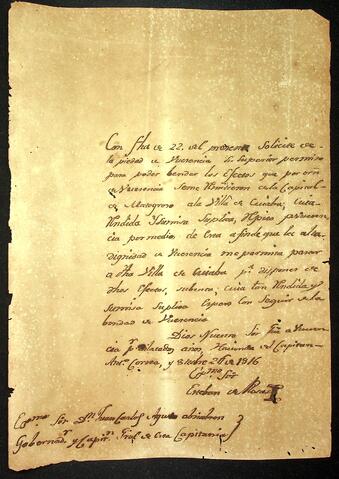 Con fha de 22. del presente Solicite de
la piedad de Vuecencia Su Superior permiso
para poder bender los Efectos que por orn
de Vuecencia Seme Remitieron de la Capital
de Matogroso ala Villa de Cuiaba; cuia
Rendida Sumisa Suplica, Repito
cia por medio, de Esta afinde que la alta
dignidad de Vuecencia me permita pasar
a dha Villa de Cuiaba pª disponer de
dhos Efectos, cuia tan Rendida y
Sumisa Suplica Espero Con Seguir de la
bondad de Vuecencia
Dios Nuestro Sor gue a Vuecen
cia ms dilatados años, Hacienda del Capitan
Antº Correa, y Octre 26 de 1816
Exmo Sor
Esteban de Rosas
Exmo Sor Dn Juan Carlos Augusto
Gobernador y Capitn Gral de Esta Capitania